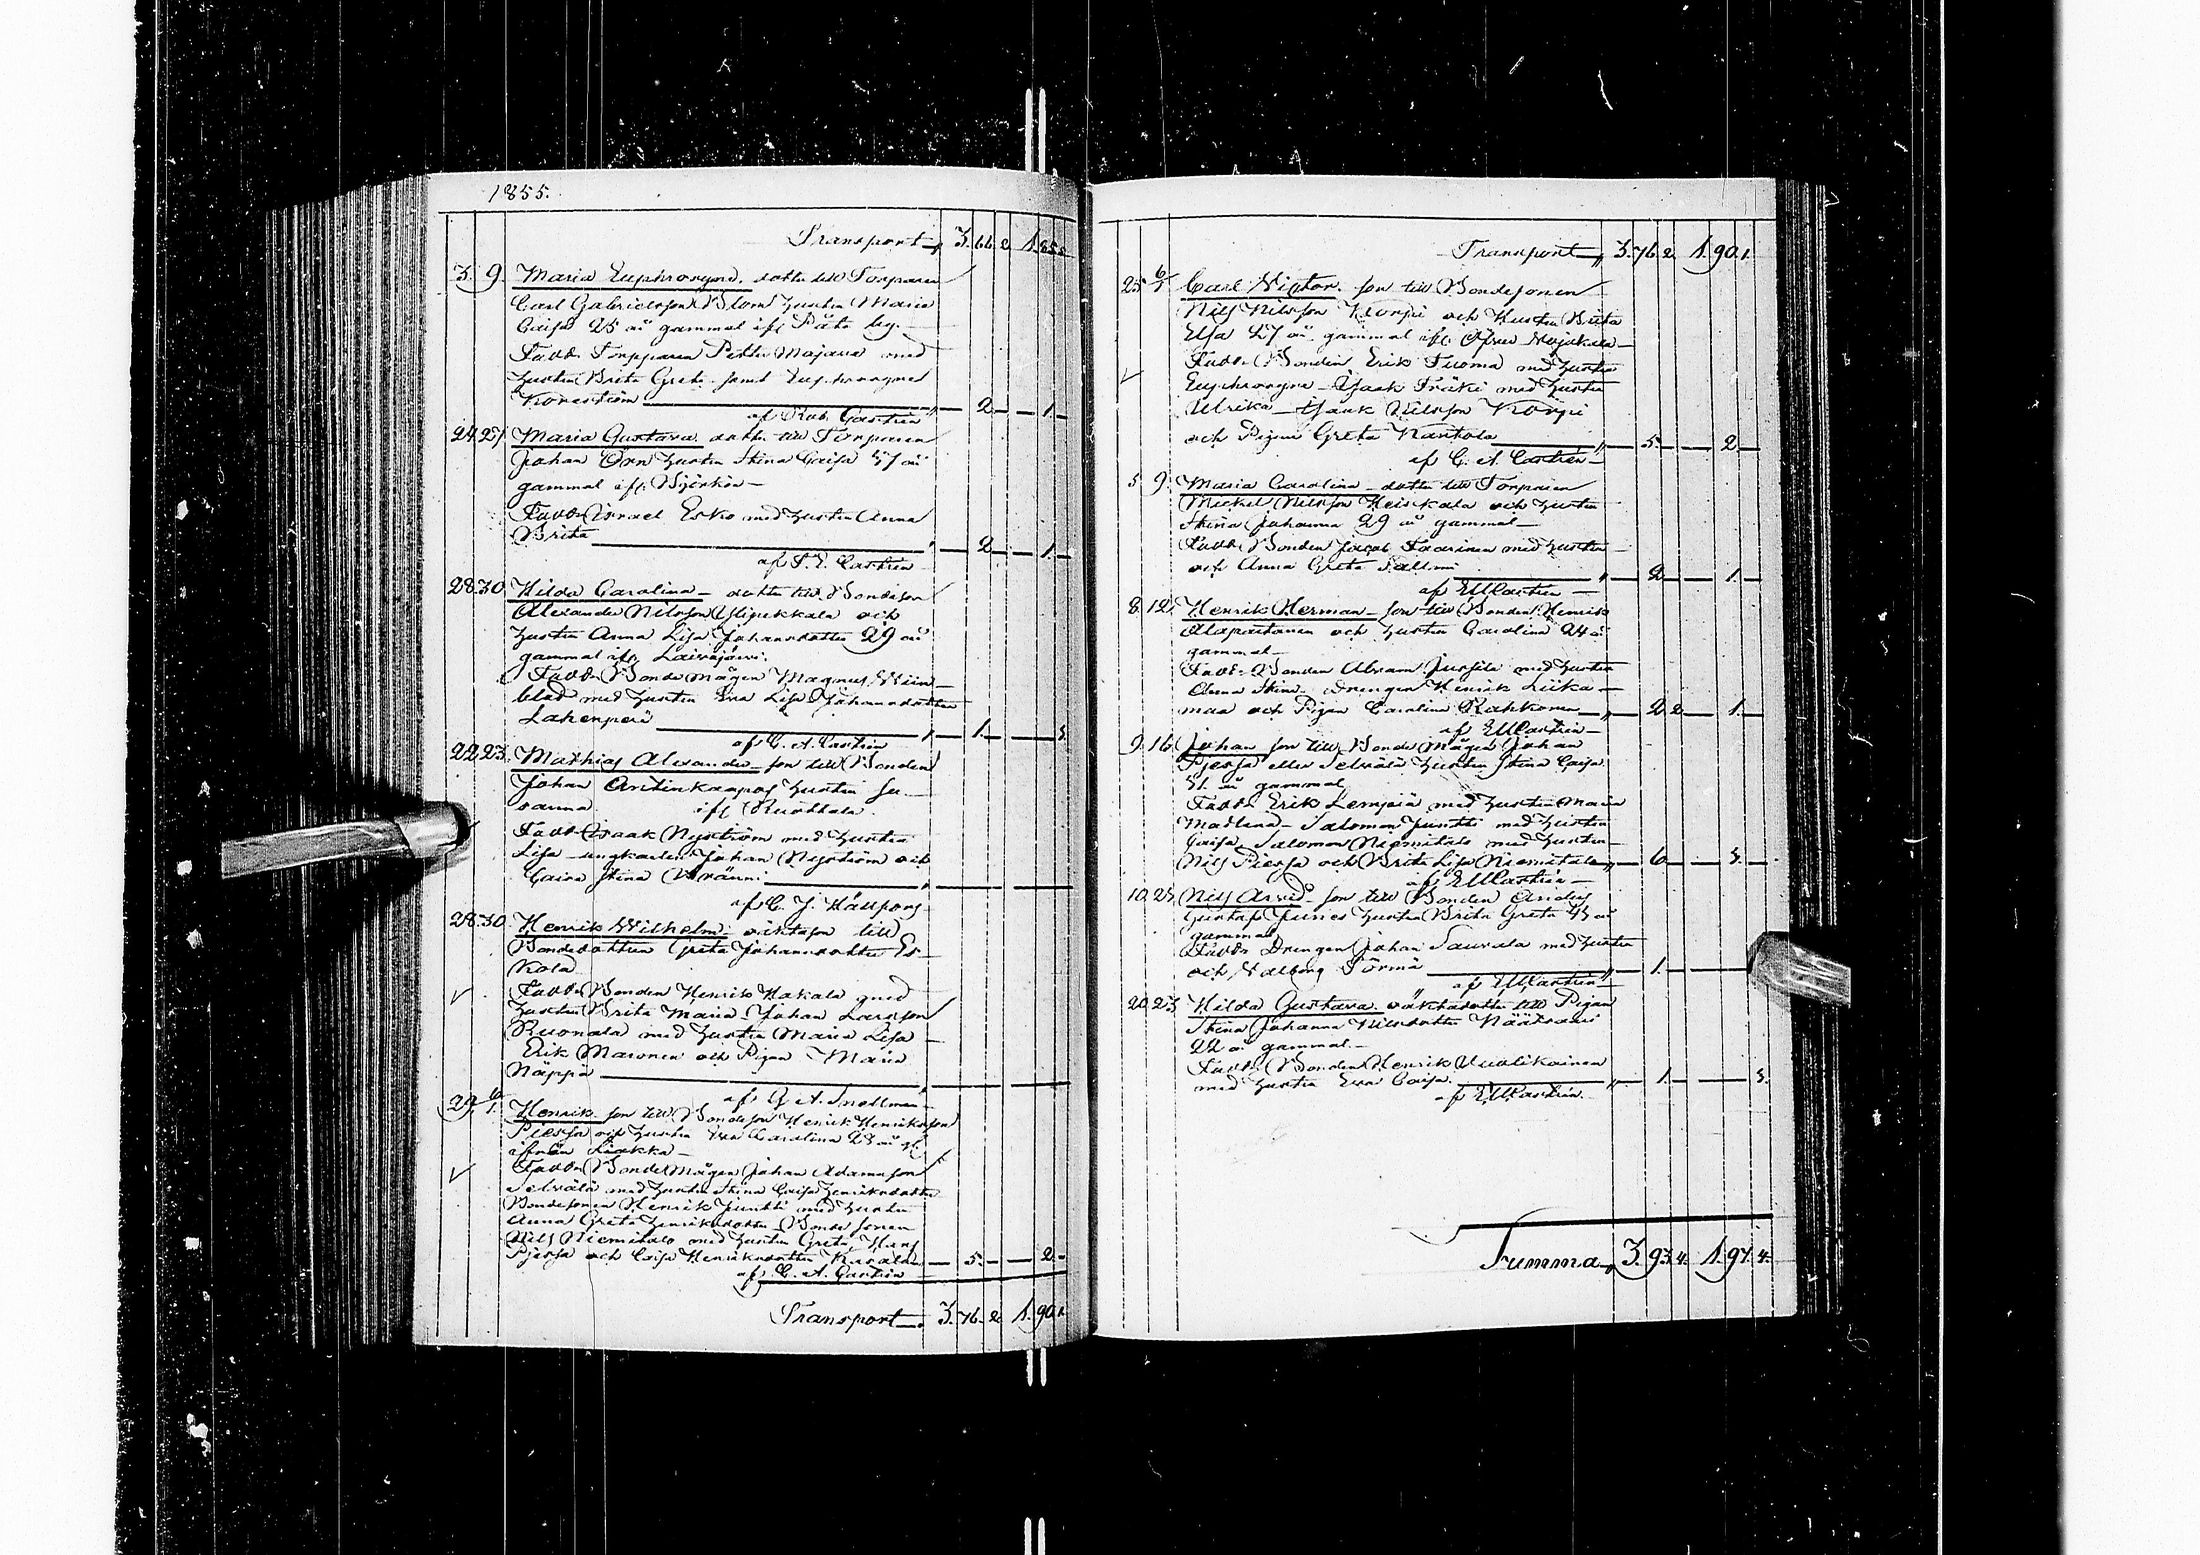 1855.
Transport 3. 66. 2. 1. 85.
3. 9. Maria Euphrosyne. dotter till Torparen
Carl Gabrielsson Blom hustru Maria
Caisa 25 år gammal ifr. Päts by.
Fadd. Torpparen Petter Majava med
hustru Brita Greta samt Euphrosyne
Korström 2. 1.
af Rob. Castrén
24. 27. Maria Gustava. dotter till Torparen
Johan Örn hustru Stina Caisa år
gammal ifr. Björkön
Fadd. Israel Esko med hustru Anna
Brita 2. 1.
af Castrén
28. 30. Hilda Carolina dotter till Bondeson
Alexander Nilsson Ylipekkala och
hustru Anna Lisa Johansdotter 29 år
gammal ifr. Laivajärvi.
Fadd. Bonde mågen Magnus
blad med hustru Eva Lisa Johansdotter
Lakenperä 1.
af C. A. Castrén
22. 23. Mathias Alexander son till Bonden
Johan Antinkaapos hustru Su-
sanna ifr. Ruottala
Fadd. Isaak Nyström med hustru
Lisa ungkarlen Johan Nyström och
Caisa Stina Bränni
af C. J. Hällfors
28. 30. Henrik Wilhelm. oäktason till
Bondedottren Greta Johansdotter Es-
kola
Fadd. Bonden Henrik Hakala med
hustru Brita Maria Johan Larsson
Ruonala med hustru Maria Lisa
Erik Maronen och Pigan Maria
Näppä
af G. A. Snellman
29. 6/1. Henrik son till Bondeson Henrik Henriksson
Piessa och hustru Eva Carolina 23 år gl.
ifrån Liakka
Fadd. Bonde Mågen Johan Adamsson
Selvälä med hustru Stina Caisa Henriksdotter
Bondesonen Henrik Juntti med hustru
Anna Greta Henriksdotter Bonde sonen
Nils Niemitalo med hustru Greta, Hans
Pjessa och Caisa Henriksdotter 5. 2.
af C. A. Castrén
Transport 3. 76. 2. 1. 90. 1.
Transport 3. 76. 2. 1. 90. 1.
25. 6/1 Carl Victor. son till Bondesonen
Nils Nilsson Korpi och Hustru Brita
Elsa 27 år gammal ifr. Öfver Wojakkala
Fadd. Bonden Erik Tuoma med hustru
Euphrosyne Isaak Träki med hustru
Ulrika Isaak Nilsson Korpi
och Pigan Greta Kantola 5. 2.
af C. A. Castrén
5. 9. Maria Carolina dotter till Torparen
Mickel Nilsson Heiskala och hustru
Stina Johanna 29 år gammal
Fadd. Bonden Jacob Taarinen med hustru
och Anna Greta 2. 1.
af EUCastrén
8. 12. Henrik Herman son till Bonden Henrik
Alapartanen och hustru Carolina 24 år
gammal
Fadd. Bonden Abram med hustru
Anna Stina. Drengen Henrik Liika-
maa och Pigan Carolina Rahkonen 2. 2. 1.
af EUCastrén
9. 16. Johan son till Bonde Mågen Johan
Pjessa eller Selvälä hustru Stina Caisa
år gammal
Fadd. Erik Lempiä med hustru Maria
Madlena Salomon Juntti med hustru
Caisa, Salomon Niemitalo med hustru
Nils Piessa och Brita Lisa Niemitalo 6. 3.
af EUCastrén
10. 25. Nils Arvid son till Bonden Anders
Gustaf Junes hustru Brita Greta år
gammal
Fadd. Drengen Johan Taurala med hustru
och Walborg Törmä 1.
af EUCastrén
20. 23. Hilda Gustava oäktadotter till Pigan
Stina Johanna Nilsdotter Näätsaari
22 år gammal.
Fadd. Bonden Henrik Uusikainen
med hustru Eva Caisa. 1. 3.
af EUCastrén.
Summa 3. 93. 4. 1. 97. 4.